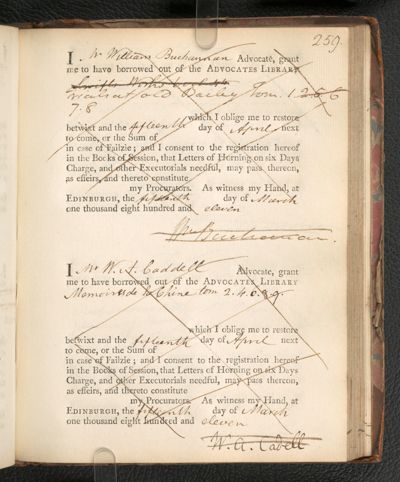 259.
I Mr William Buchannan Advocate, grant
me to have borrowed out of the ADVOCATES LIBRARY
Swifts Works
Trials at Old Bailey Tom. 1. 2. 6
7. 8
which I oblige me to restore
betwixt and the fifteenth day of April next
to come, or the Sum of
in case of Failzie; and I consent to the registration hereof
in the Books of Session, that Letters of Horning on six Days
Charge, and other Executorials needful, may pass thereon,
as effeirs, and thereto constitute
my Procurators. As witness my Hand, at
EDINBURGH, the fifteenth day of March
one thousand eight hundred and eleven
Wm Buchannan.
I Mr W. A. Caddell Advocate, grant
me to have borrowed out of the ADVOCATES LIBRARY
Memoires de la Chine tom 2. 4. 6. 8. 9.
which I oblige me to restore
betwixt and the fifteenth day of April next
to come, or the Sum of
in case of Failzie; and I consent to the registration hereof
in the Books of Session, that Letters of Horning on six Days
Charge, and other Executorials needful, may pass thereon,
as effeirs, and thereto constitute
my Procurators. As witness my Hand, at
EDINBURGH, the fifteenth day of March
one thousand eight hundred and eleven
W. A. Cadell